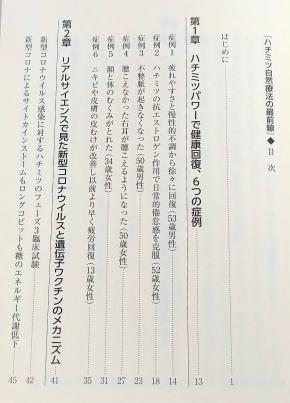 『ハチミツ自然療法の最前線』◆目 次
はじめに……1
第1章 ハチミツパワーで健康回復、6つの症例……13
症例1 疲れやすさと慢性的不調から徐々に回復(53歳男性)……14
症例2 ハチミツの抗エストロゲン作用で日常的倦怠感を克服(52歳女性)……18
症例3 不整脈が起きなくなった(50歳男性)……23
症例4 聴こえなかった右耳が聴こえるようになった(50歳女性)……27
症例5 顔と体のむくみがとれた(34歳女性)……31
症例6 ニキビや皮膚の皮むけが改善し以前より早く疲労回復(13歳女性)……35
第2章 リアルサイエンスで見た新型コロナウイルスと遺伝子ワクチンのメカニズム……41
新型コロナウイルス感染に対するハチミツのフェーズ3臨床試験……42
新型コロナによるサイトカインストームもロングコビットも糖のエネルギー代謝低下……45